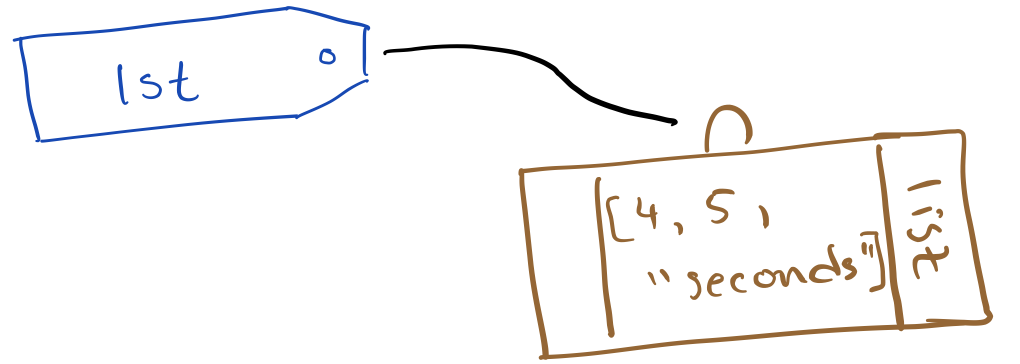 lst
[4, 5,
"seconds"]
list